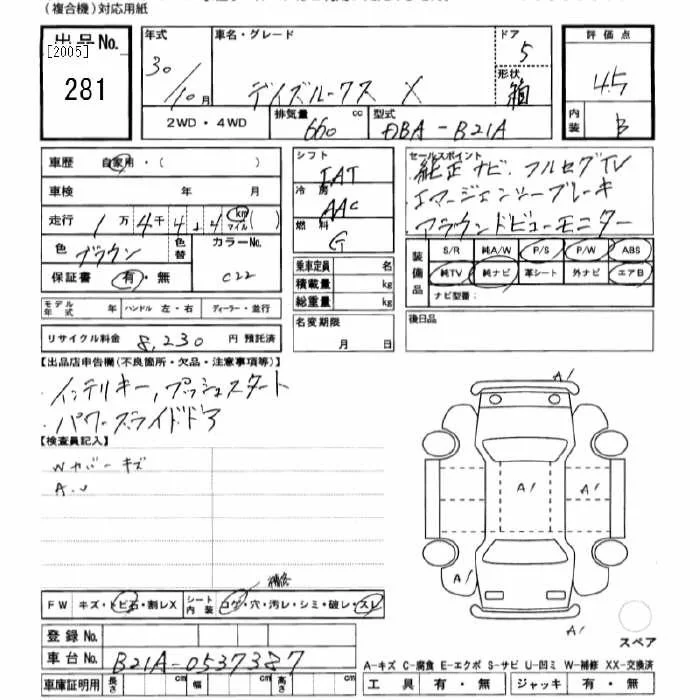 (複合機)対応用紙
出品No.
[2005]
281
年式 30/10月
車名・グレード デイズルークス X
ドア 5
形状 箱
評価点 4.5
内装 B
2WD・4WD
排気量 660 cc
型式 DBA-B21A
車歴 自家用・( )
車検 年 月
走行 1万4千424 km マイル( )
色 ブラウン
色替
カラーNo. C22
保証書 有・無
シフト IAT
冷房 AAC
燃料 G
乗車定員 名
積載量 kg
総重量 kg
名変期限
月 日
セールスポイント
・純正ナビ、フルセグTV
・エマージェンシーブレーキ
・アラウンドビューモニター
装備品
S/R 純A/W P/S P/W ABS
純TV 純ナビ 革シート 外ナビ エアB
ナビ型番:
後日品
モデル年式 年 ハンドル 左・右 ディーラー・並行
リサイクル料金 8,230 円 預託済
【出品店申告欄(不良箇所・欠品・注意事項等)】
・インテリキー,プッシュスタート
・パワースライドドア
【検査員記入】
Wカバーキズ
A.U
A1
A1
A1
A1
A1
補合
FW キズ・トビ石・割レX
シート内装 コゲ・穴・汚レ・シミ・破レ・スレ
スペア
登録No.
車台No. B21A-0537387
車庫証明用 長さ cm 幅 cm 高さ cm
A-キズ C-腐食 E-エクボ S-サビ U-凹ミ W-補修 XX-交換済
工具 有・無 ジャッキ 有・無